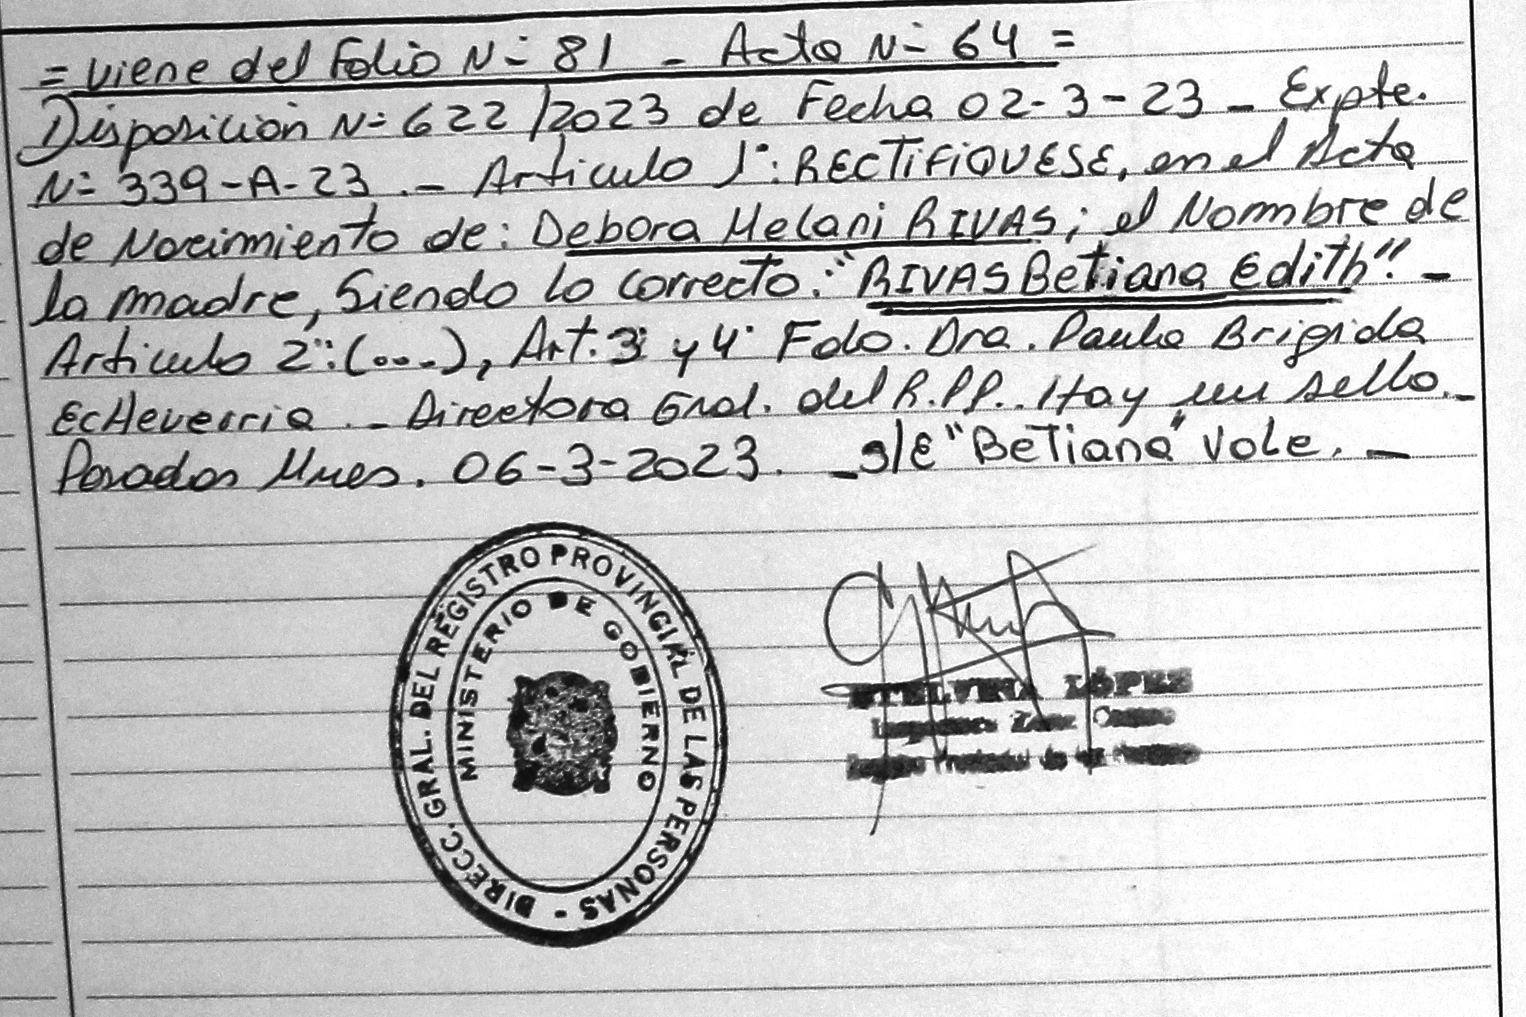 = viene del Folio N= 81 - Acta N= 64 =
Disposición N= 622/2023 de Fecha 02-3-23 - Expte.
N= 339-A-23 .- Articulo 1°: RECTIFIQUESE, en el Acta
de Nacimiento de: Debora Melani RIVAS; el Nombre de
la madre, Siendo lo correcto: "RIVAS Betiana Edith". -
Articulo 2°: (...), Art. 3° y 4° Fdo. Dra. Paula Brigida
EcHeverria .- Directora Gral. del R.P.P.. Hay un sello.-
Posadas Mnes. 06-3-2023. - s/E "BeTiana" Vale. -
DIRECC. GRAL. DEL REGISTRO PROVINCIAL DE LAS PERSONAS -
MINISTERIO DE GOBIERNO
LÓPEZ